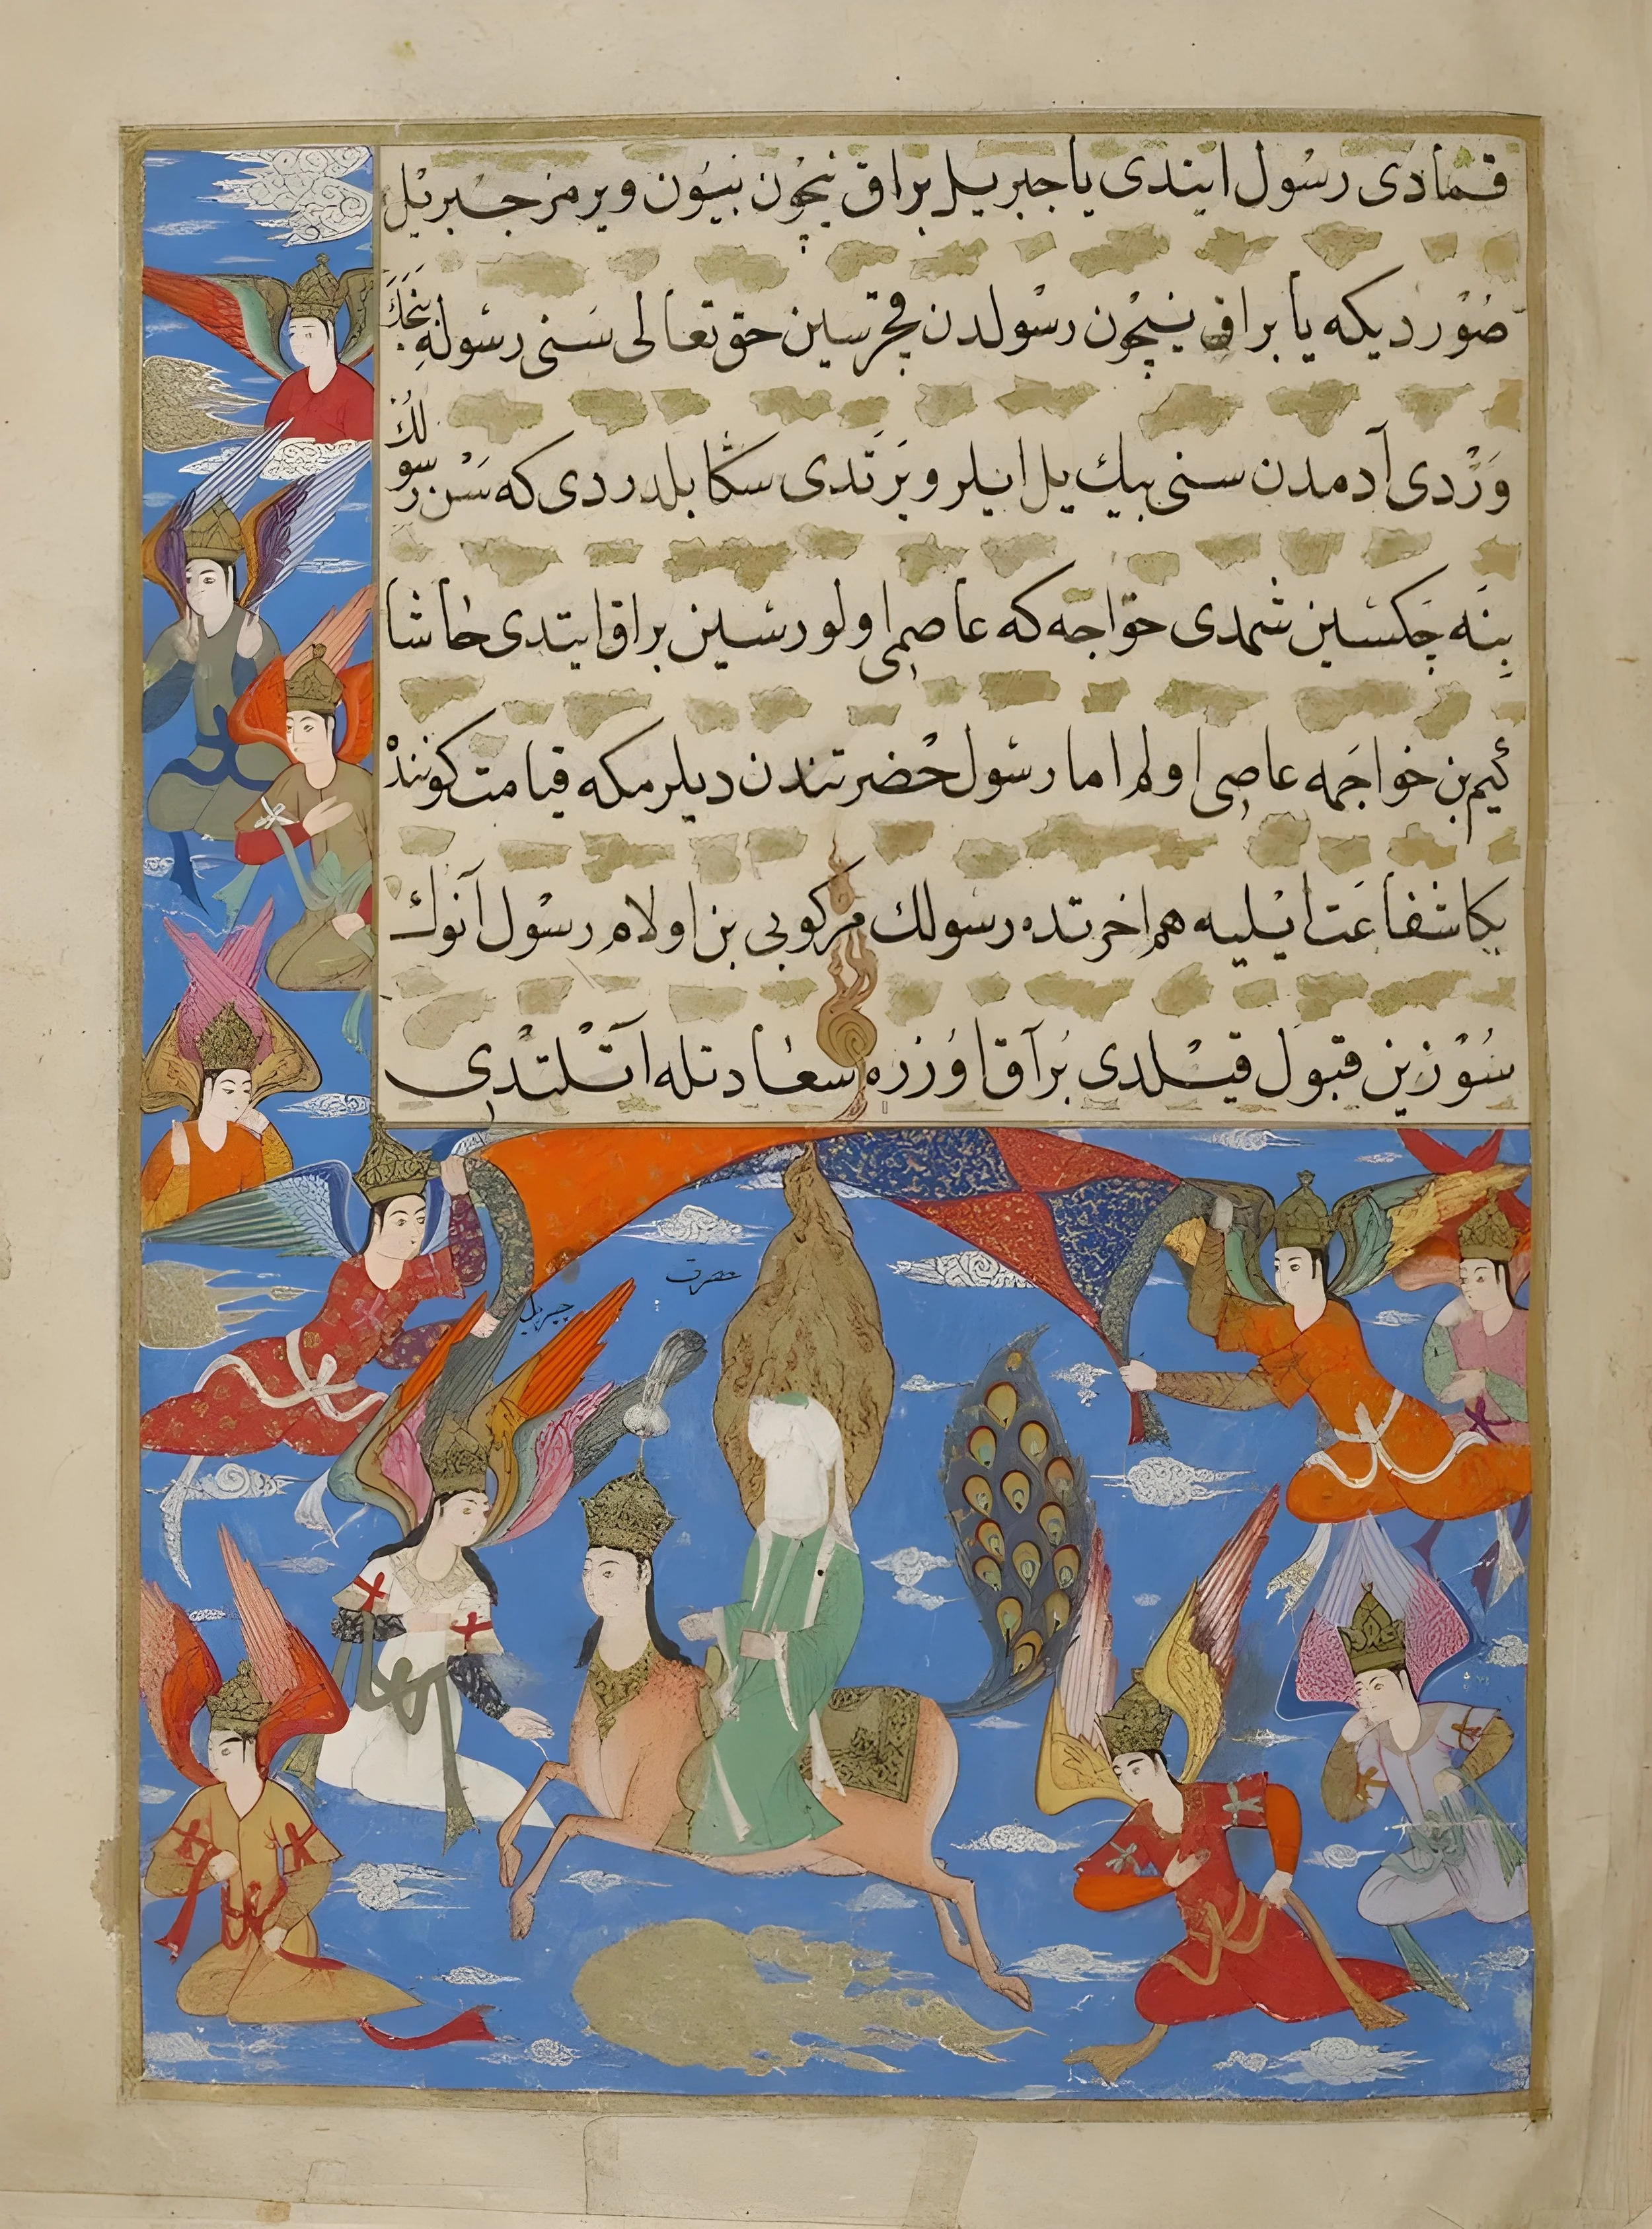 قمادی رسول ایتدی یا جبریل براق نیچون بیون ویرمز جبریل
صوردیکه یا براق نیچون رسولدن قچرسین حق تعالی سنی رسوله
وردی آدمدن سنی بیك ییل ایلرو یرتدی سڭا بلدردی که سن رسولك
بینه جکسین شمدی خواجه که عاصمی اولورسین براق ایتدی حاشا
کیم بن خواجمه عاصی اولم اما رسول حضرتندن دیلرمکه قیامت کوننده
بکا شفاعت ایلیه هم اخرتده رسولك مرکوبی بن اولام رسول آنوك
سوزین قبول قیلدی براق اوزره سعادتله آتلندی
حضرت
جبریل